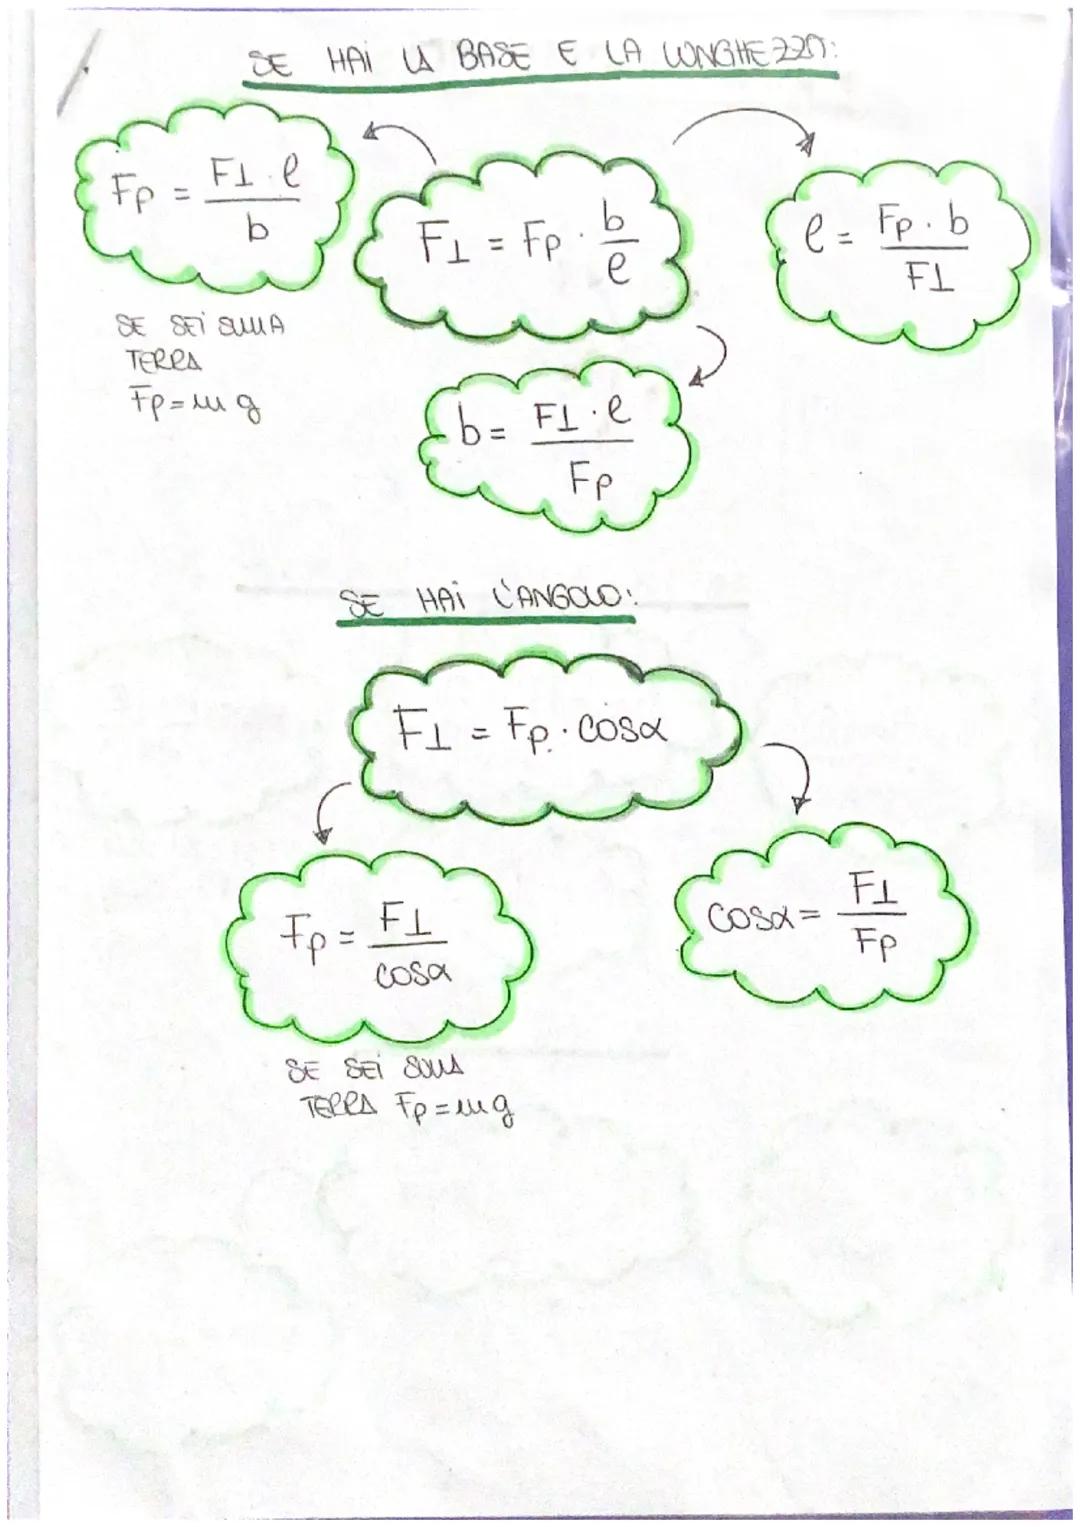 SE HAI LA BASE E LA LUNGHEZZA:
Fp = F⊥ · l / b
F⊥ = Fp · b / l
l = Fp · b / F⊥
SE SEI SULLA
TERRA
Fp = m g
b = F⊥ · l / Fp
SE HAI L'ANGOLO:
F⊥ = Fp · cosα
Fp = F⊥ / cosα
cosα = F⊥ / Fp
SE SEI SULLA
TERRA Fp = m g